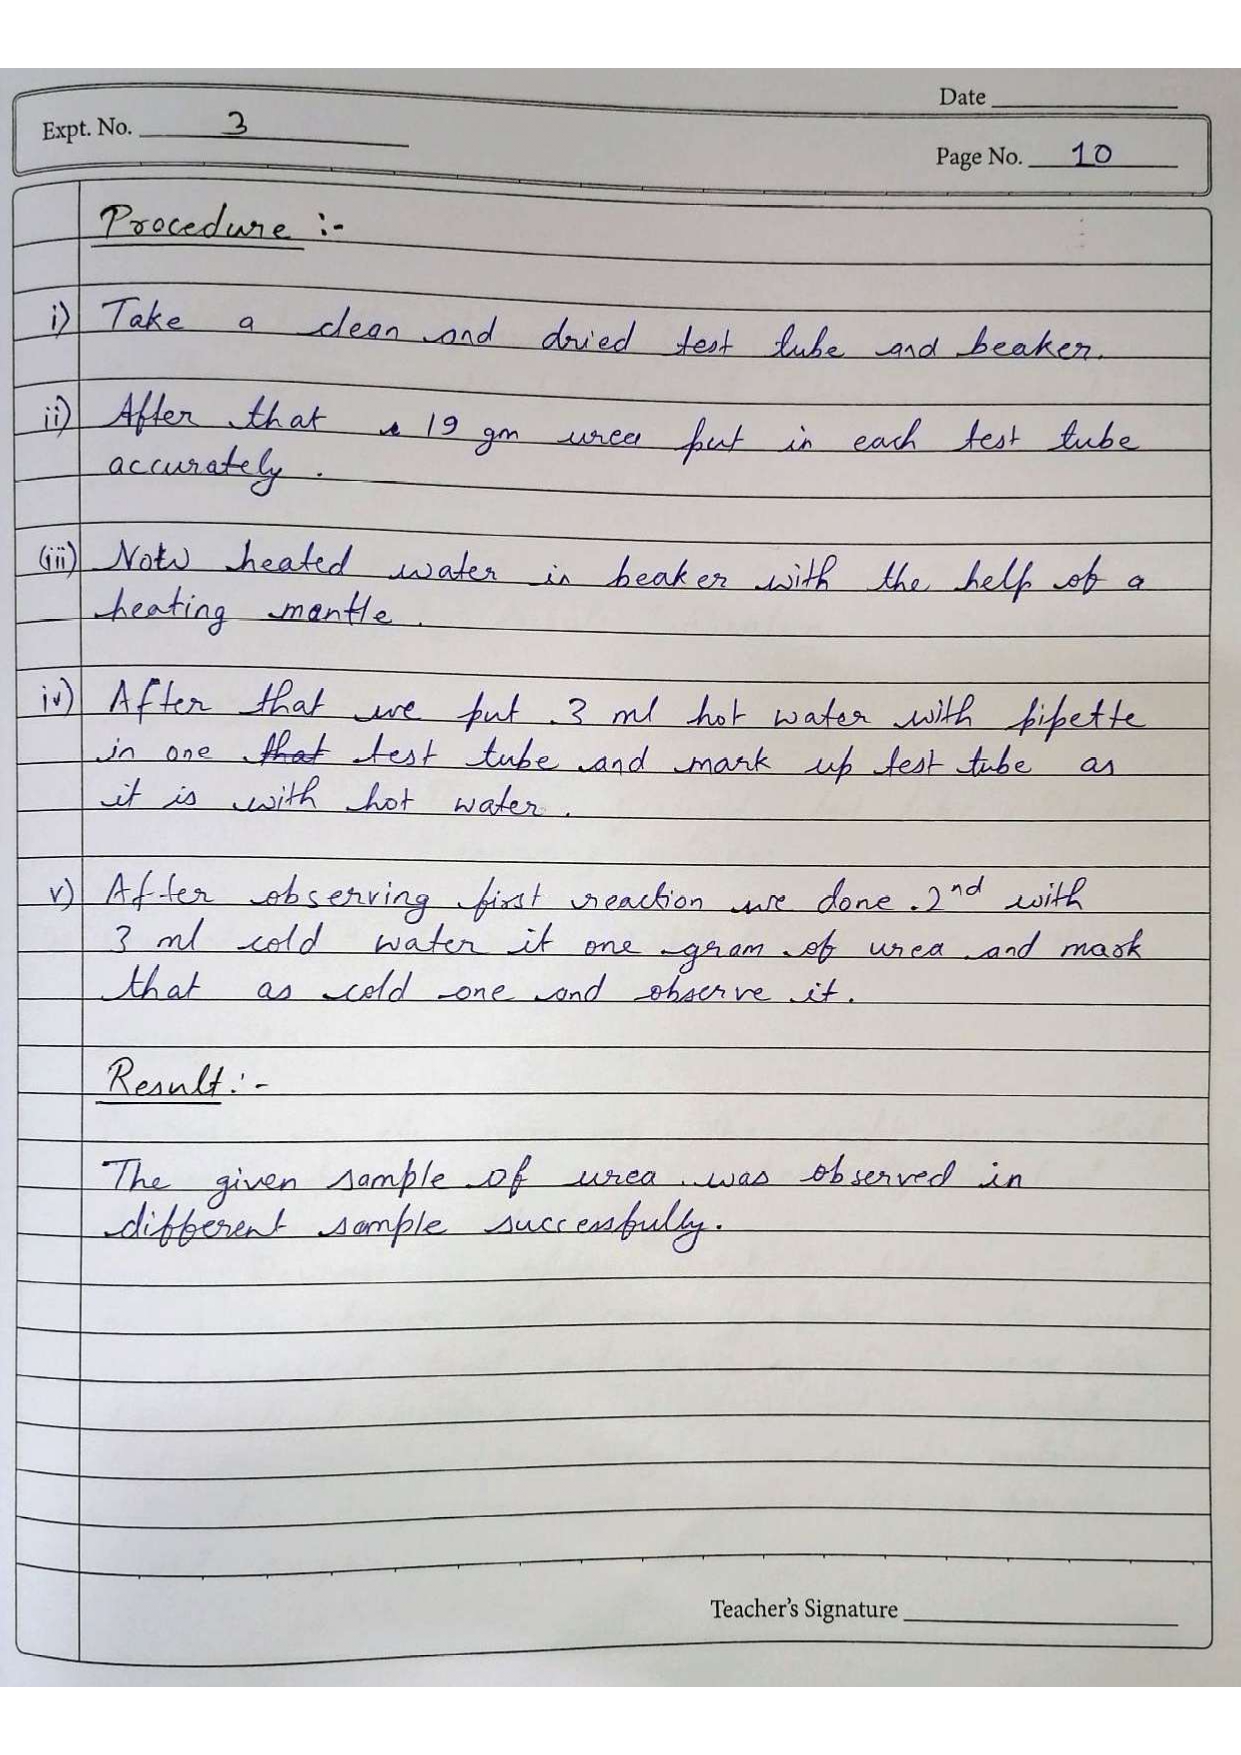 Date
Expt. No. 3
Page No. 10
Procedure :-
i) Take a clean and dried test tube and beaker.
ii) After that 19 gm urea put in each test tube
accurately.
(iii) Now heated water in beaker with the help of a
heating mantle.
iv) After that we put 3 ml hot water with pipette
in one that test tube and mark up test tube as
it is with hot water.
v) After observing first reaction we done 2nd with
3 ml cold water it one gram of urea and mark
that as cold one and observe it.
Result :-
The given sample of urea was observed in
different sample successfully.
Teacher's Signature